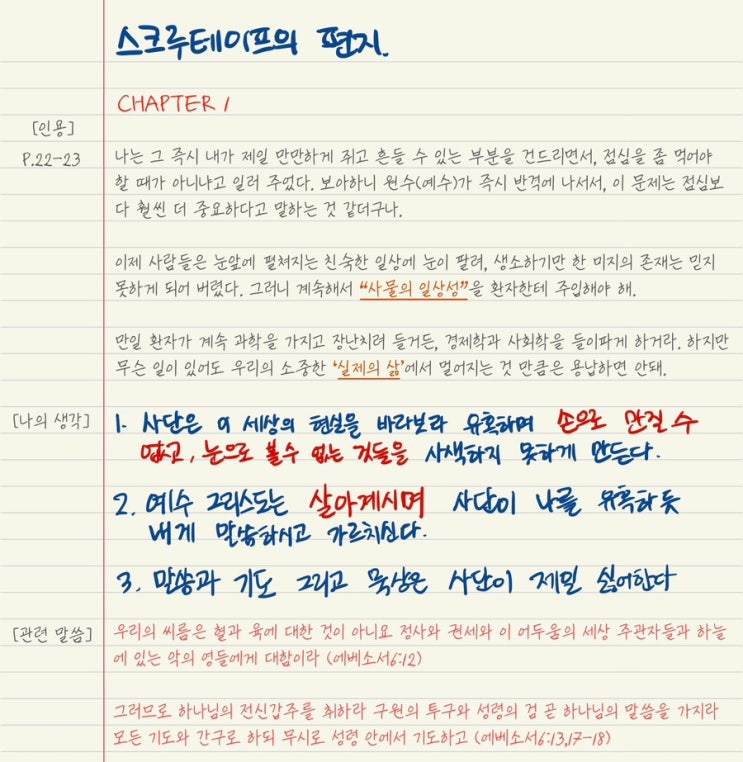 스크루테이프의 편지.
CHAPTER 1
[인용]
P.22-23
나는 그 즉시 내가 제일 만만하게 쥐고 흔들 수 있는 부분을 건드리면서, 점심을 좀 먹어야
할 때가 아니냐고 일러 주었다. 보아하니 원수(예수)가 즉시 반격에 나서서, 이 문제는 점심보
다 훨씬 더 중요하다고 말하는 것 같더구나.
이제 사람들은 눈앞에 펼쳐지는 친숙한 일상에 눈이 팔려, 생소하기만 한 미지의 존재는 믿지
못하게 되어 버렸다. 그러니 계속해서 “사물의 일상성”을 환자한테 주입해야 해.
만일 환자가 계속 과학을 가지고 장난치려 들거든, 경제학과 사회학을 들이파게 하거라. 하지만
무슨 일이 있어도 우리의 소중한 ‘실제의 삶’에서 멀어지는 것 만큼은 용납하면 안돼.
[나의 생각]
1. 사단은 이 세상의 현실을 바라보라 유혹하며 손으로 만질 수
없고, 눈으로 볼수 없는 것들을 사색하지 못하게 만든다.
2. 예수 그리스도는 살아계시며 사단이 나를 유혹하듯
내게 말씀하시고 가르치신다.
3. 말씀과 기도 그리고 묵상은 사단이 제일 싫어한다
[관련 말씀]
우리의 씨름은 혈과 육에 대한 것이 아니요 정사와 권세와 이 어두움의 세상 주관자들과 하늘
에 있는 악의 영들에게 대함이라 (에베소서6:12)
그러므로 하나님의 전신갑주를 취하라 구원의 투구와 성령의 검 곧 하나님의 말씀을 가지라
모든 기도와 간구로 하되 무시로 성령 안에서 기도하고 (에베소서6:13,17-18)